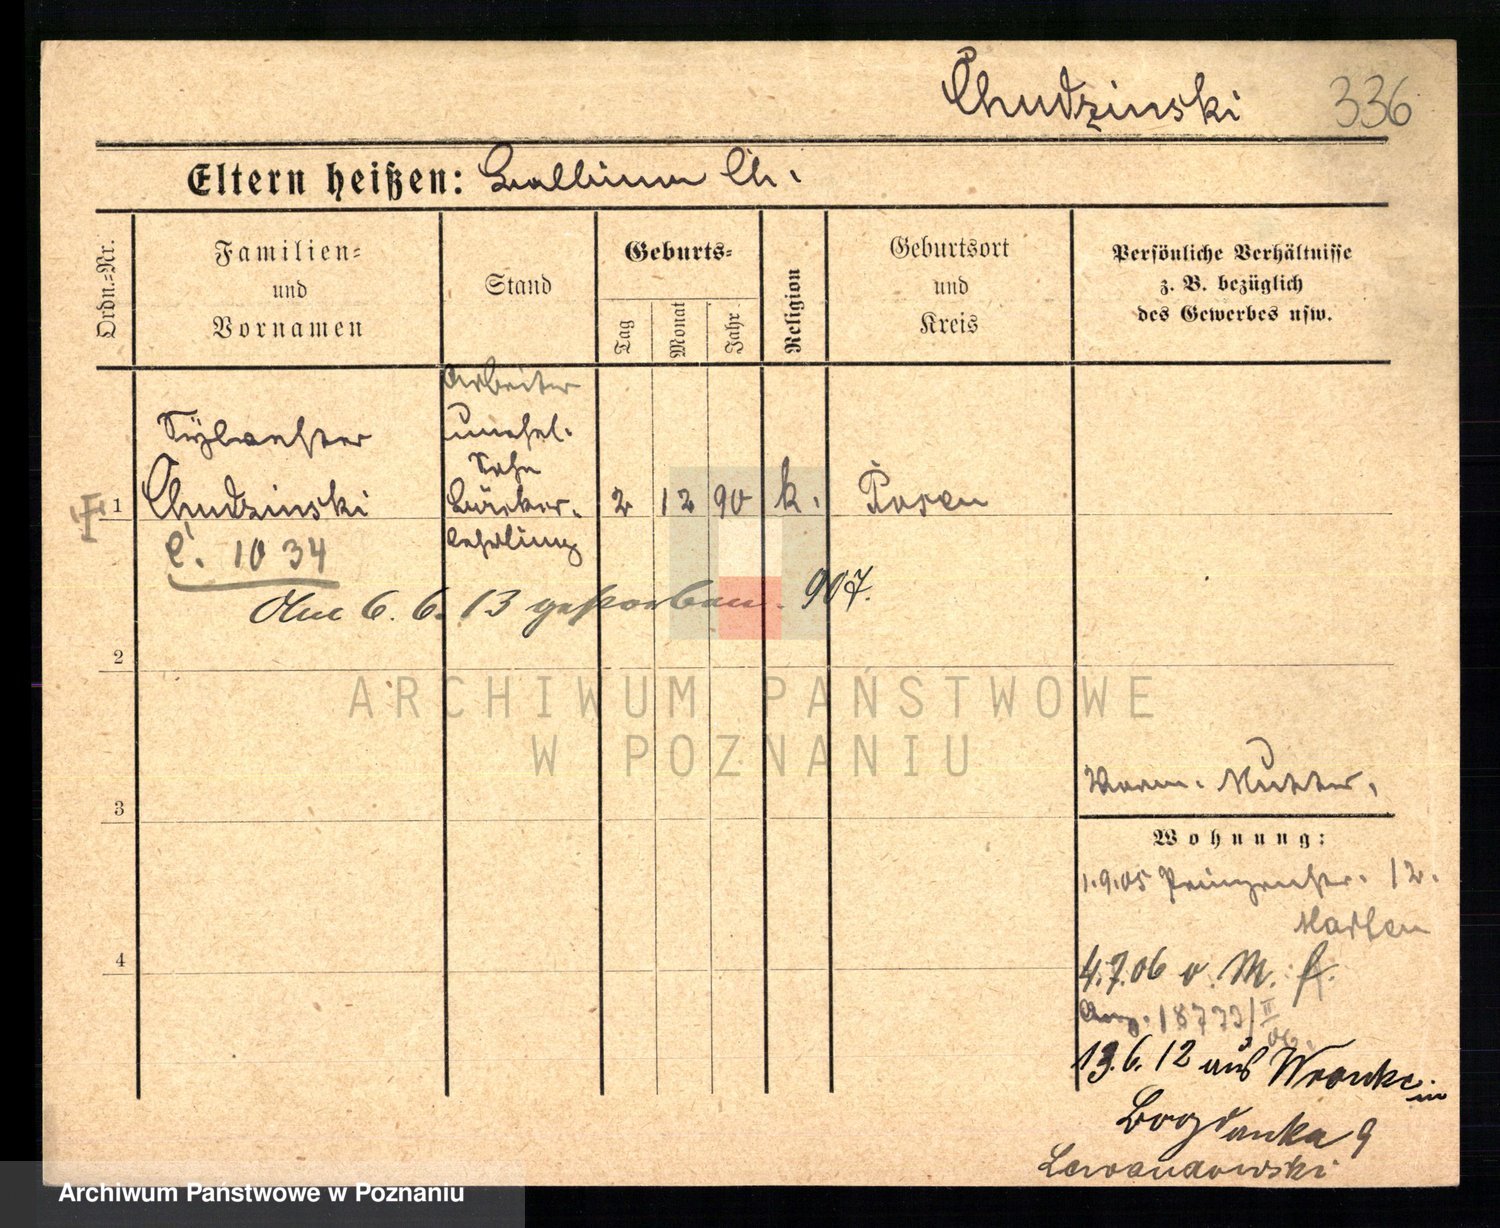 Chudzinski 336
Eltern heißen: Balbina Ch.
Ordn.-Nr.
Familien-
und
Vornamen
Stand
Geburts-
Tag
Monat
Jahr
Religion
Geburtsort
und
Kreis
Persönliche Verhältnisse
z. B. bezüglich
des Gewerbes usw.
Arbeiter
Sylvester
unehel.
Sohn
1 Chudzinski Bäcker- 2 12 90 k. Posen
lehrling
C. 1034
Am 6. 6. 13 gestorben. 907.
2
ARCHIWUM PAŃSTWOWE
W POZNANIU
3
Vorm. Mutter.
Wohnung:
1.9.05 Prinzenstr. 12.
4
4.7.06 v. M.
13.6.12 aus Wronke in
Bogdanka 9
Lewandowski
Archiwum Państwowe w Poznaniu